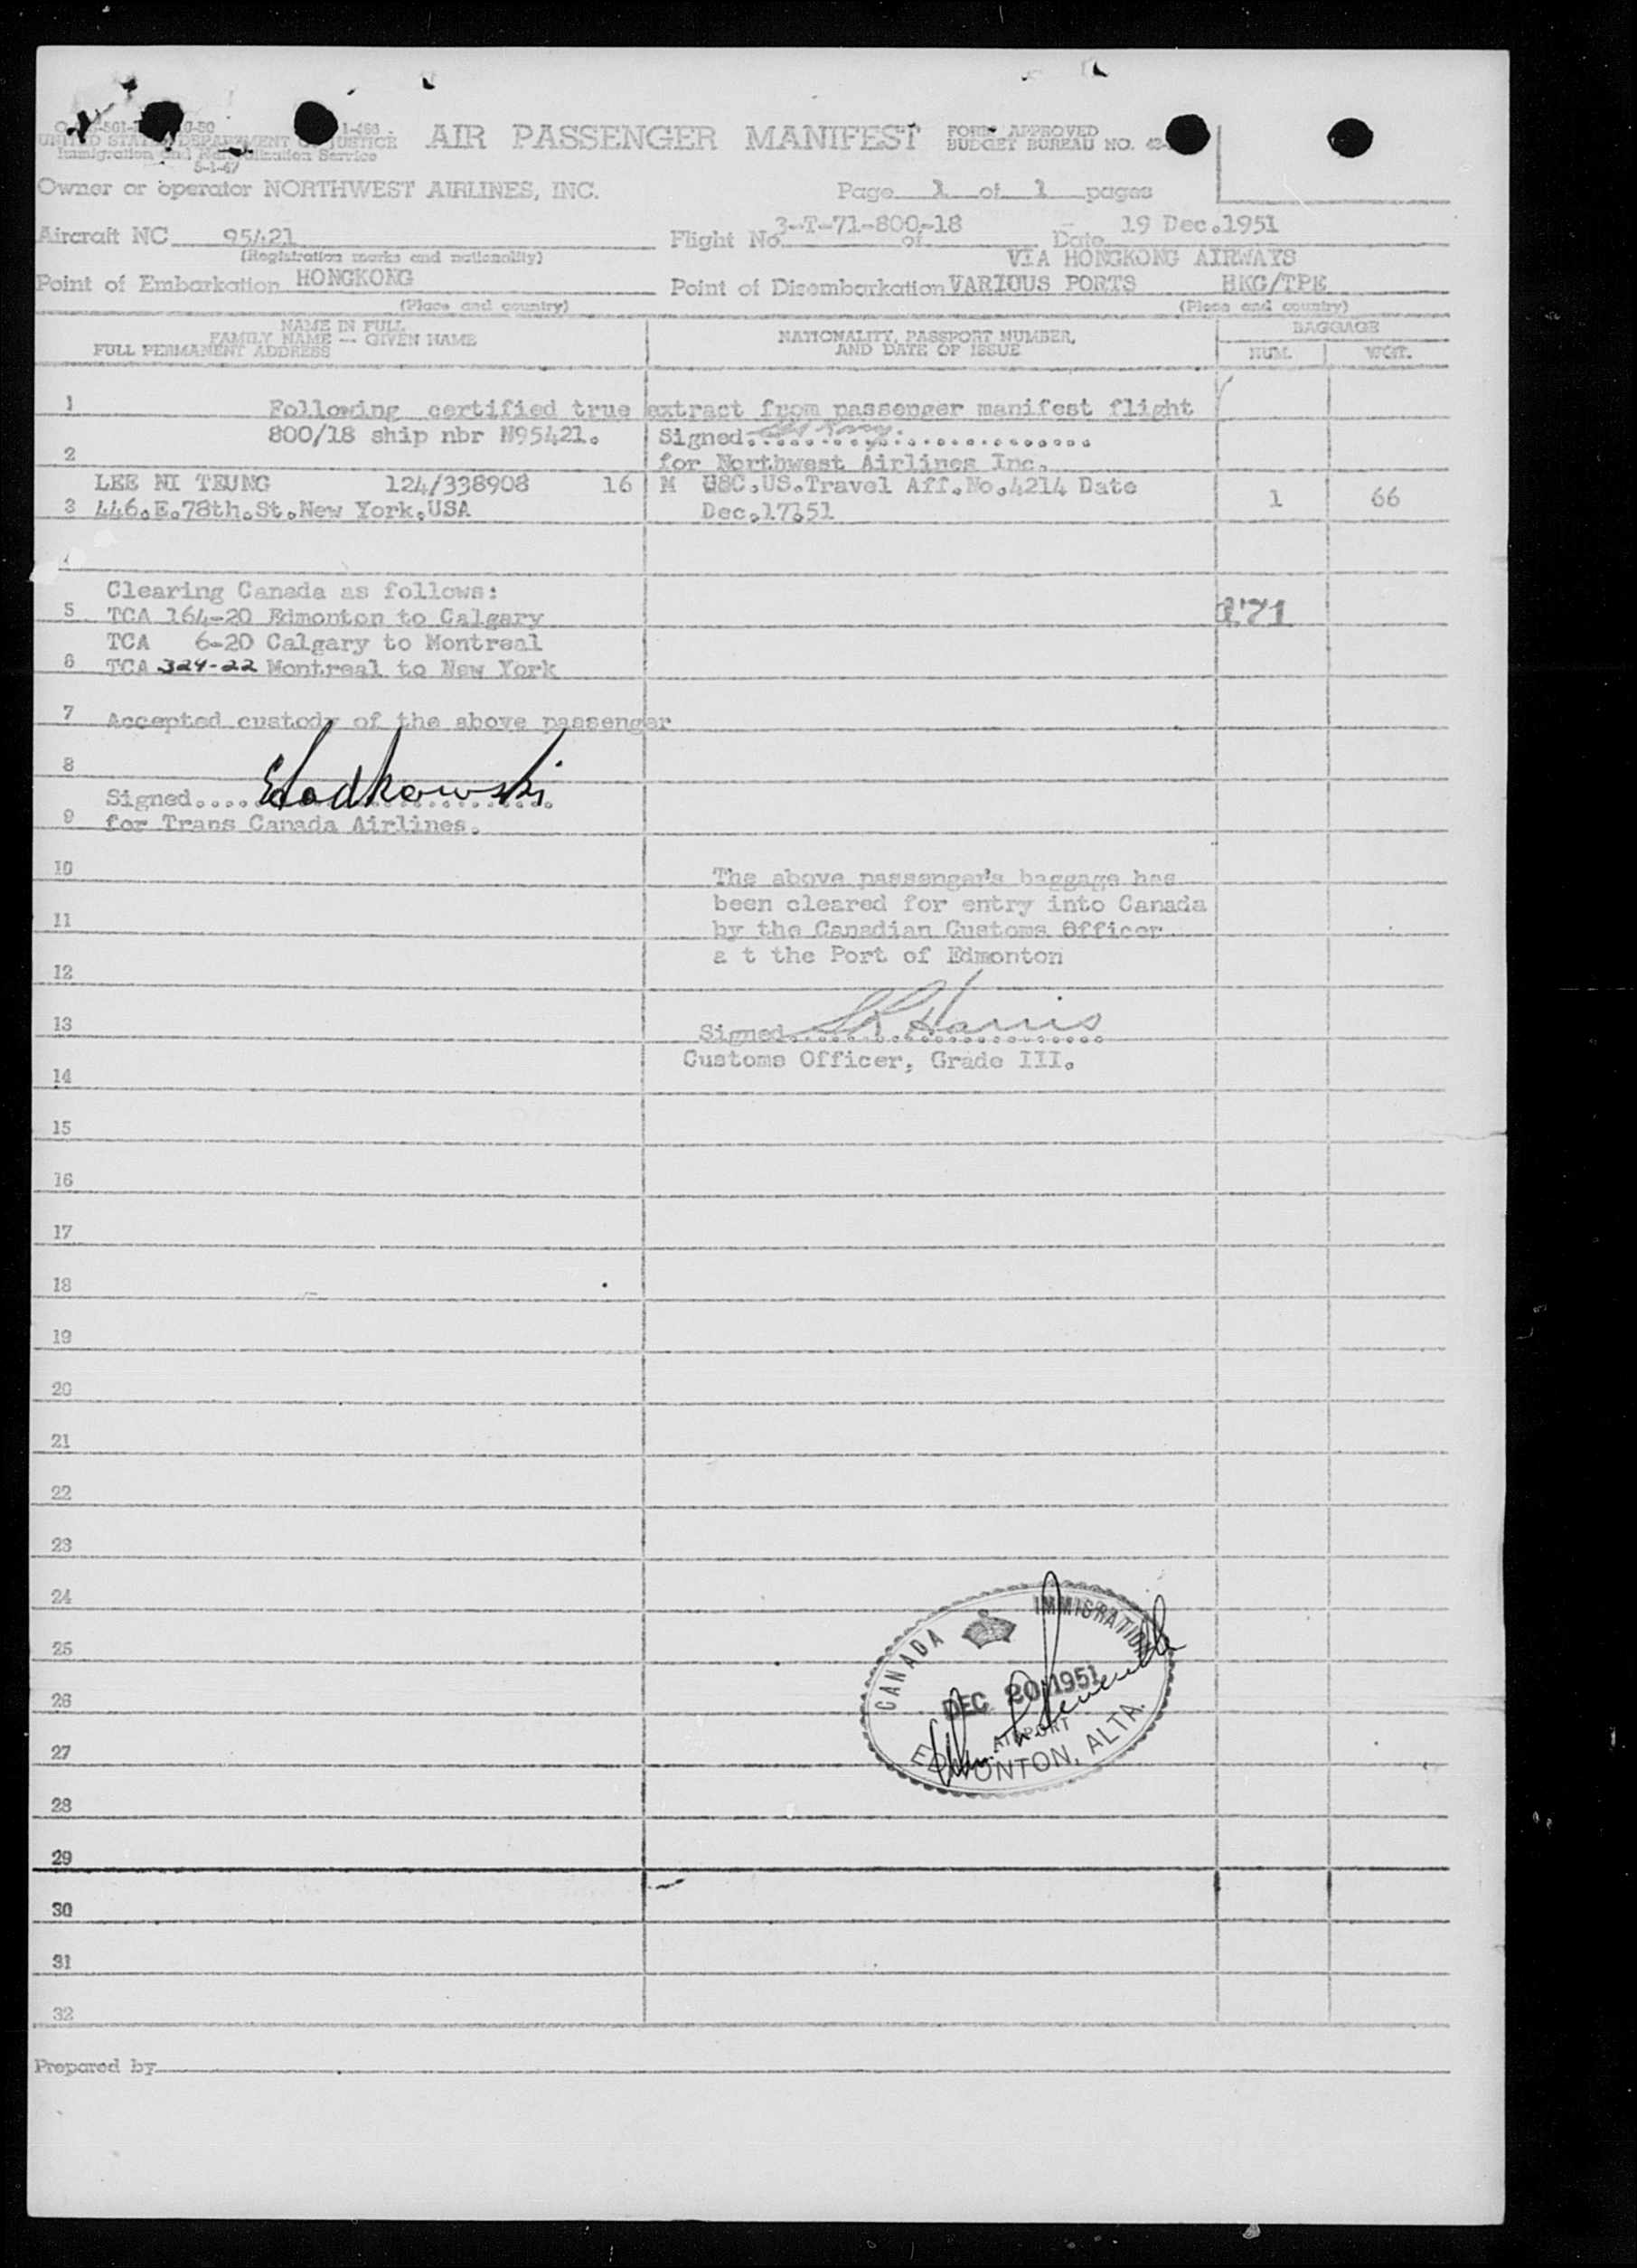 1-466
UNITED STATES DEPARTMENT OF JUSTICE
Immigration and Naturalization Service
5-1-47
AIR PASSENGER MANIFEST
FORM APPROVED
BUDGET BUREAU NO.
Owner or operator NORTHWEST AIRLINES, INC.
Page 1 of 1 pages
Aircraft NC 95421
(Registration marks and nationality)
Flight No. 3-T-71-800-18 of
Date 19 Dec.1951
VIA HONGKONG AIRWAYS
Point of Embarkation HONGKONG
(Place and country)
Point of Disembarkation VARIOUS PORTS HKG/TPE
(Place and country)
NAME IN FULL
FAMILY NAME -- GIVEN NAME
FULL PERMANENT ADDRESS
NATIONALITY, PASSPORT NUMBER,
AND DATE OF ISSUE
BAGGAGE
NUM. WGT.
1 Following certified true extract from passenger manifest flight
800/18 ship nbr N95421. Signed
2 for Northwest Airlines Inc.
LEE NI TEUNG 124/338908 16 M USC.US.Travel Aff.No.4214 Date
3 446.E.78th.St.New York.USA Dec.17.51 1 66
4
Clearing Canada as follows:
5 TCA 164-20 Edmonton to Calgary
TCA 6-20 Calgary to Montreal
6 TCA 324-22 Montreal to New York
7 Accepted custody of the above passenger
8
Signed
9 for Trans Canada Airlines.
10 The above passenger's baggage has
been cleared for entry into Canada
11 by the Canadian Customs Officer
a t the Port of Edmonton
12
13 Signed Harris
Customs Officer, Grade III.
14
15
16
17
18
19
20
21
22
23
24
25
26
27
28
29
30
31
32
CANADA IMMIGRATION
DEC 20 1951
AIRPORT
EDMONTON, ALTA.
Prepared by